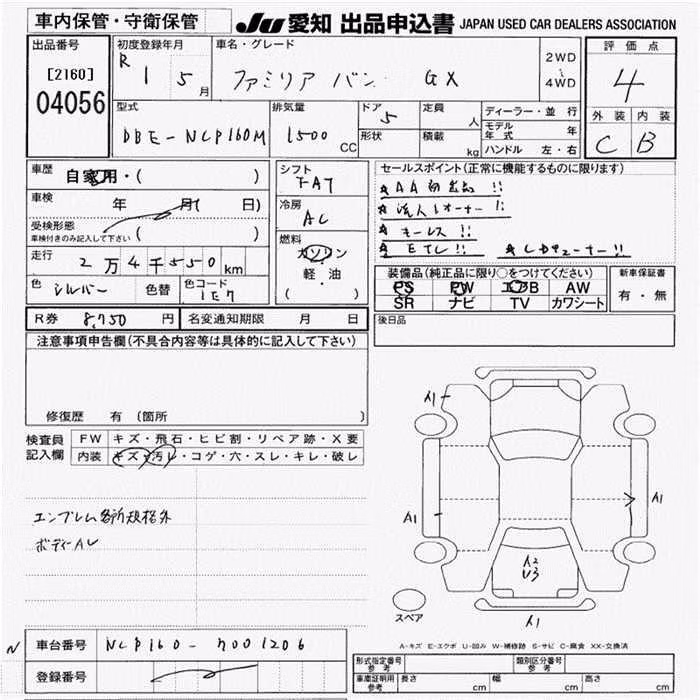 車内保管・守衛保管
JU 愛知 出品申込書 JAPAN USED CAR DEALERS ASSOCIATION
出品番号
[2160]
04056
初度登録年月
R 1 5 月
車名・グレード
ファミリア バン GX
2WD
4WD
評価点
4
外装 内装
C B
型式
DBE-NCP160M
排気量
1500 CC
ドア
5
形状
定員
人
積載
kg
ディーラー・並行
モデル年式 年
ハンドル 左・右
車歴
自家用・( )
車検
年 月( 日)
受検形態
車検付きのみ記入して下さい ( )
走行
2万4千550km
色
シルバー 色替
色コード
1E7
シフト
FAT
冷房
AC
燃料
ガソリン
軽・油
( )
セールスポイント(正常に機能するものに限ります)
★ AA !!
★ 法人1オーナー !!
★ キーレス !!
★ ETC !! ★ !!
装備品(純正品に限り○をつけてください)
PS PW エアB AW
SR ナビ TV カワシート
新車保証書
有・無
R券 8,750 円
名変通知期限 月 日
後日品
注意事項申告欄(不具合内容等は具体的に記入して下さい)
修復歴 有 〔箇所 〕
検査員
記入欄
FW キズ・飛石・ヒビ割・リペア跡・X要
内装 キズ・汚レ・コゲ・穴・スレ・キレ・破レ
エンブレム各所規格外
ボディAU
A1
A1
A1
A2
U3
A1
スペア
A-キズ E-エクボ U-凹み W-補修跡 S-サビ C-腐食 XX-交換済
N
車台番号 NCP160-7001206
登録番号
形式指定番号
参考
類別区分番号
参考
車庫証明用
参考
長さ cm
幅 cm
高さ cm